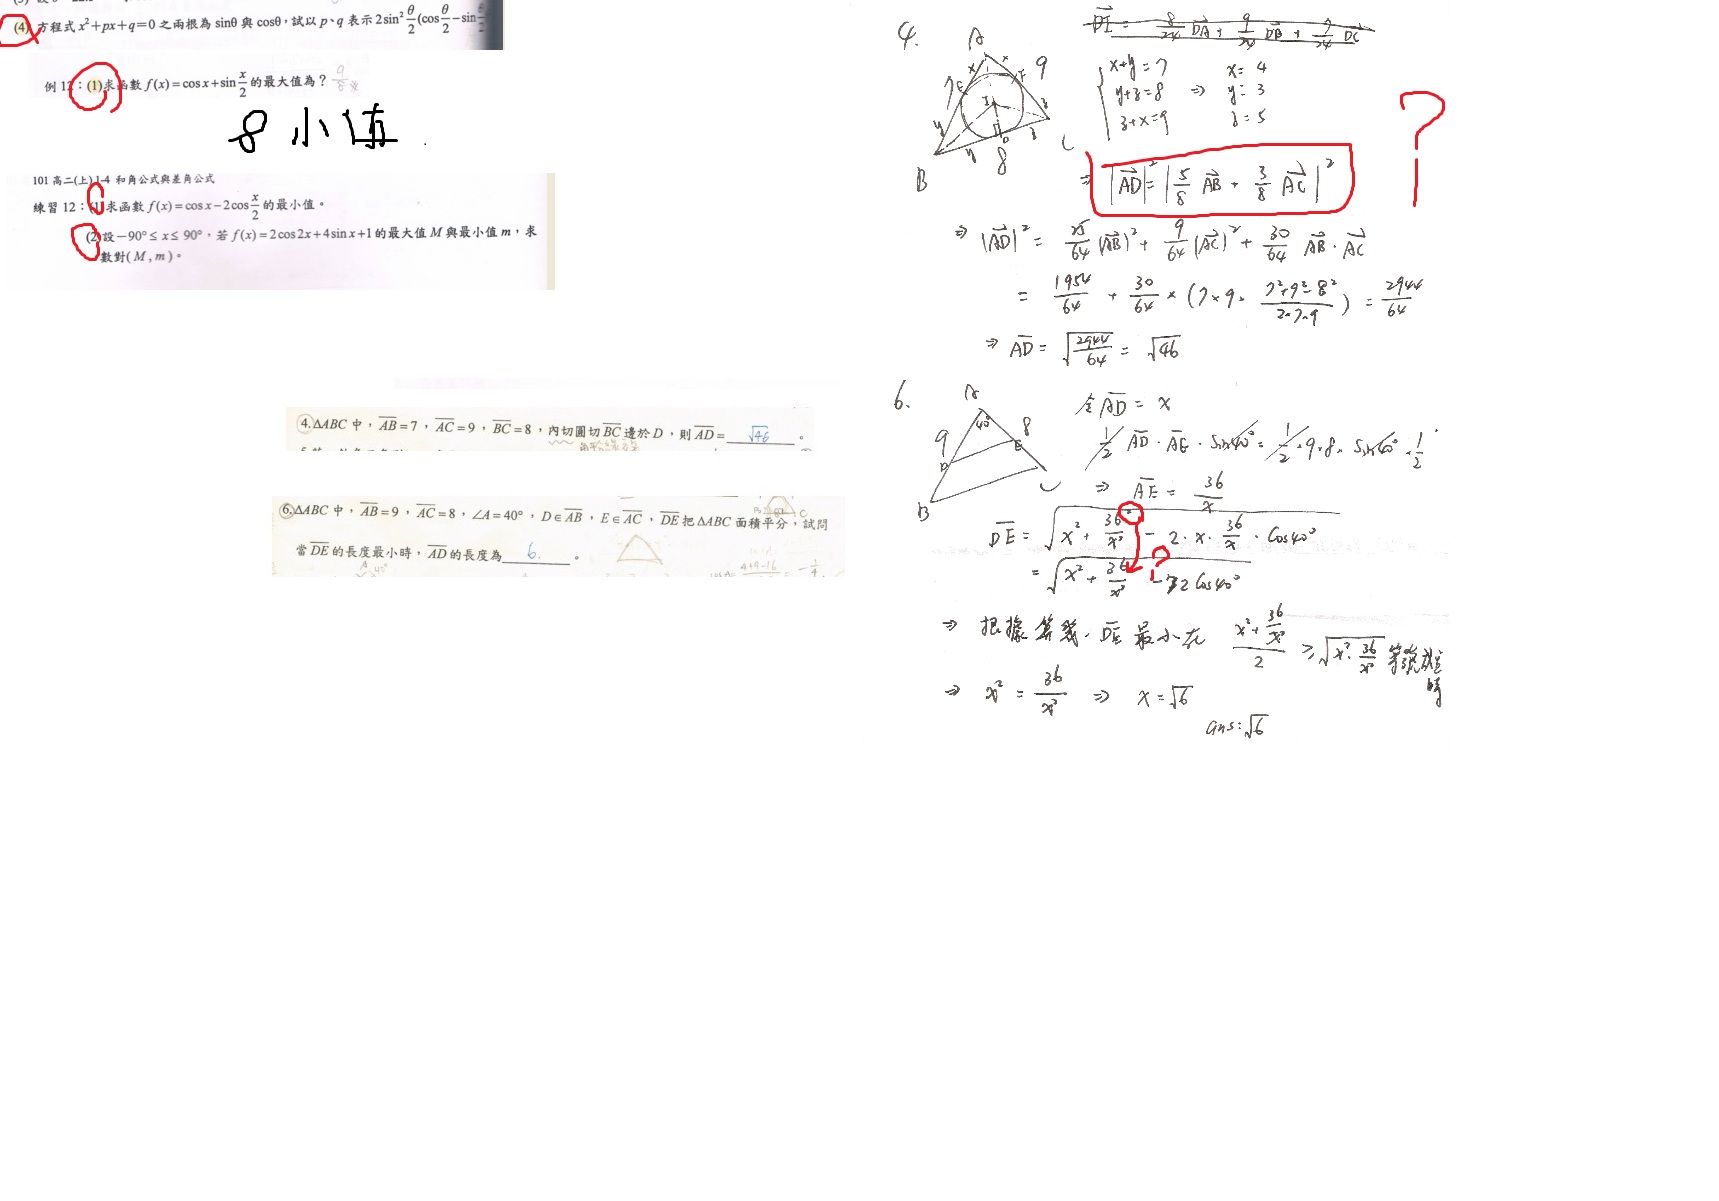 (4) 方程式 x²+px+q=0 之兩根為 sinθ 與 cosθ，試以 p、q 表示 2sin² θ/2 (cos θ/2 − sin
例 12：(1)求函數 f(x)=cos x+sin x/2 的最大值為？ 9/8
8 小值
101 高二(上) 1-4 和角公式與差角公式
練習 12：(1)求函數 f(x)=cos x−2cos x/2 的最小值。
(2)設−90°≤x≤90°，若 f(x)=2cos2x+4sin x+1 的最大值 M 與最小值 m，求
數對(M,m)。
4.ΔABC 中，AB=7，AC=9，BC=8，內切圓切 BC 邊於 D，則 AD= √46 。
6.ΔABC 中，AB=9，AC=8，∠A=40°，D∈AB，E∈AC，DE 把 ΔABC 面積平分，試問
當 DE 的長度最小時，AD 的長度為 6. 。
4.
DI = 8/24 DA + 9/24 DB + 7/24 DC
A
B
C
7
9
8
x+y=7
y+z=8
z+x=9
⇒
x=4
y=3
z=5
?
⇒ |AD|² = |5/8 AB + 3/8 AC|²
⇒ |AD|² = 25/64 (AB)² + 9/64 (AC)² + 30/64 AB · AC
= 1954/64 + 30/64 × (7×9× 7²+9²−8²/2·7·9) = 2944/64
⇒ AD = √2944/64 = √46
6.
A
40°
9
8
D
E
B
C
令 AD = x
1/2 AD · AE · Sin40° = 1/2 · 9 · 8 · Sin40° · 1/2
⇒ AE = 36/x
DE = √x² + 36²/x² − 2·x· 36/x · Cos40°
= √x² + 36/x² − 72 Cos40°
?
⇒ 根據算幾，DE 最小在 x²+36/x² / 2 ≥ √x² · 36/x² 等號成立時
⇒ x² = 36/x² ⇒ x = √6
ans: √6